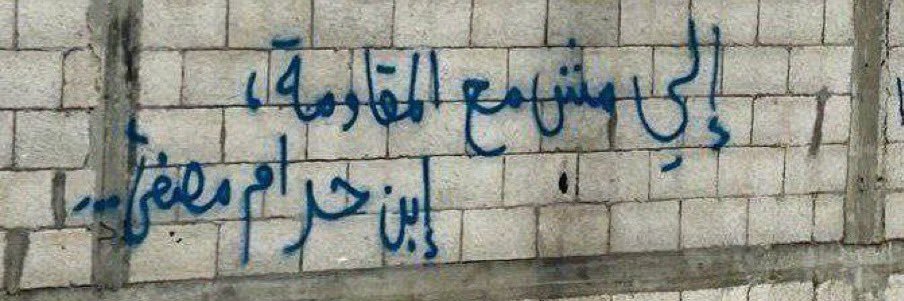 إلي مش مع المقاومة،
إبن حرام مصفّى...